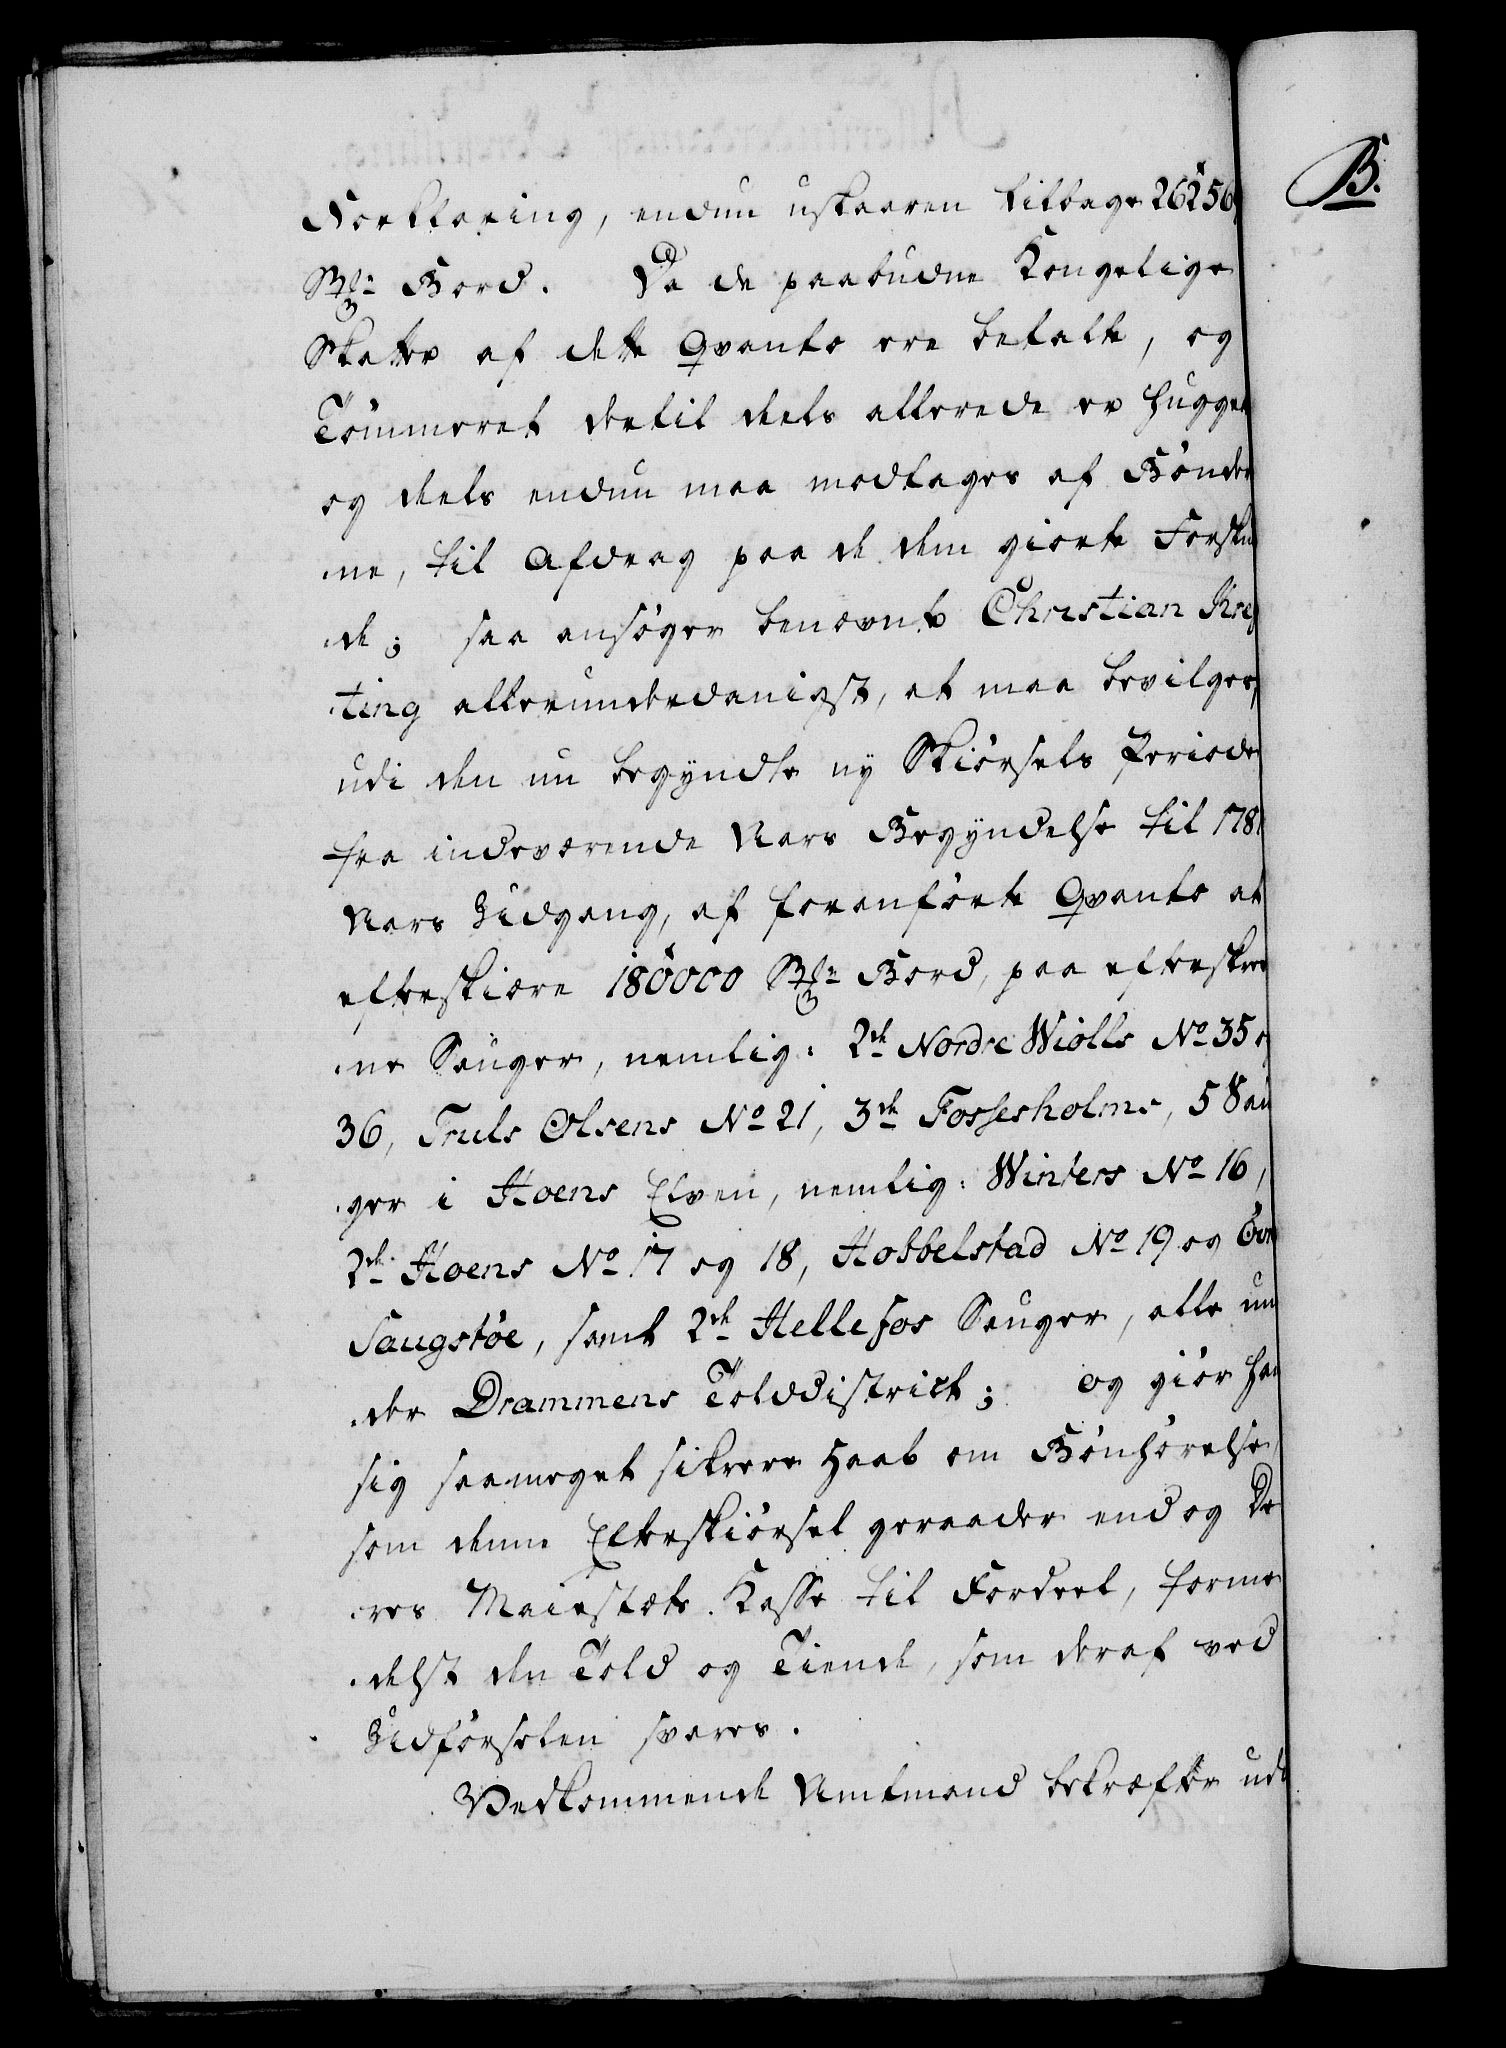 B.
Forklaring, endnu uskaaren tilbage 26256
Bord. Da de paabudne Kongelige
Skatter af dette Qvanto ere betalte, og
Tømmeret dertil deels allerede er hugget
og deels endnu maa modtages af Bønder
ne, til Afdrag paa de dem giorte Forsku
de; saa ansøger benævnte Christian Kre
ting allerunderdanigst, at maa bevilges,
udi den nu begyndte ny Skiørsels Periode
fra indeværende Aars Begyndelse til 178
Aars Udgang, af foranførte Qvanto at
efterskiære 180000 Bord, paa efterskrev
ne Sauger, nemlig: 2de Nordre Wiolls No 35 o
36, Truls Olsens No 21, 3de Fossesholms, 5 Sau
ger i Hoens Elven, nemlig: Winters No 16,
2de Hoens No 17 og 18, Hobbelstad No 19 og Øvr
Saugstøe, samt 2de Hellefos Sauger, alle un
der Drammens Tolddistrict; og giør han
sig saameget sikrere Haab om Bønhørelse,
som denne Efterskiørsel geraader endog De
res Maiestæts Kasse til Fordeel, forme
delst den Told og Tiende, som deraf ved
Udførselen svares.
Vedkommende Amtmand bekræfter ud